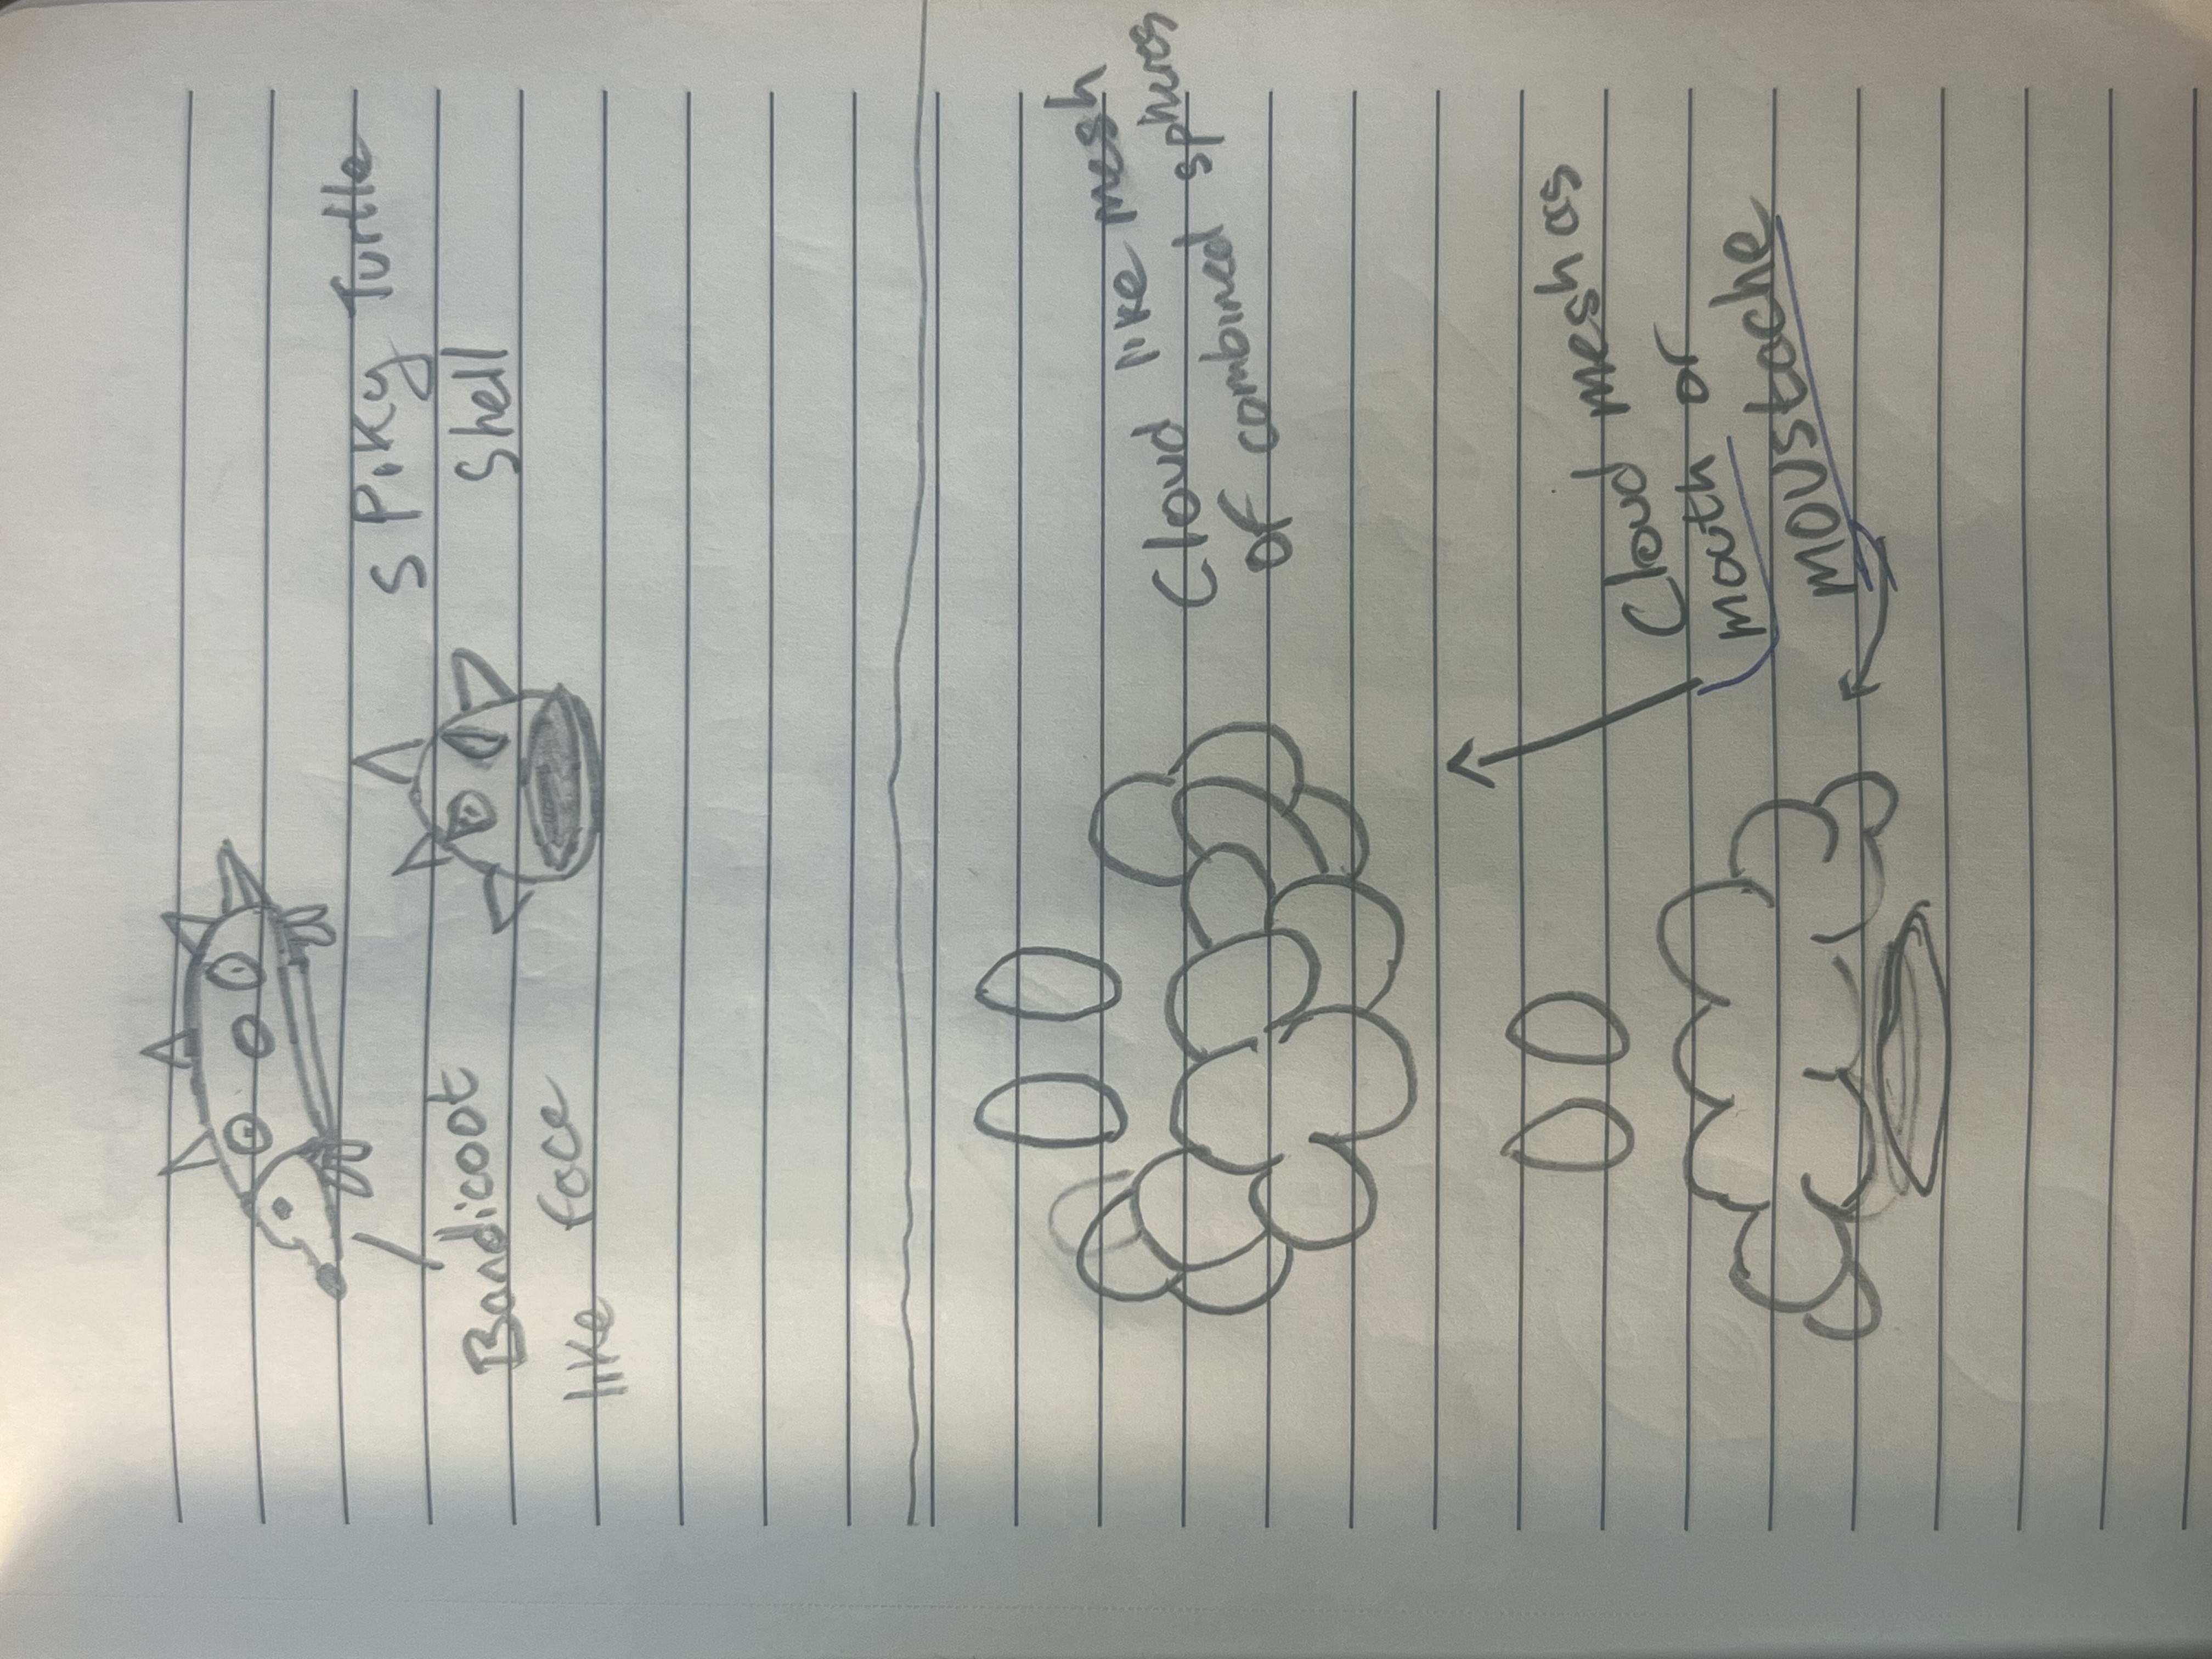 Bandicoot
like face
SPiKy Turtle
Shell
Cloud like mesh
of combined spheres
Cloud mesh as
mouth or
moustache